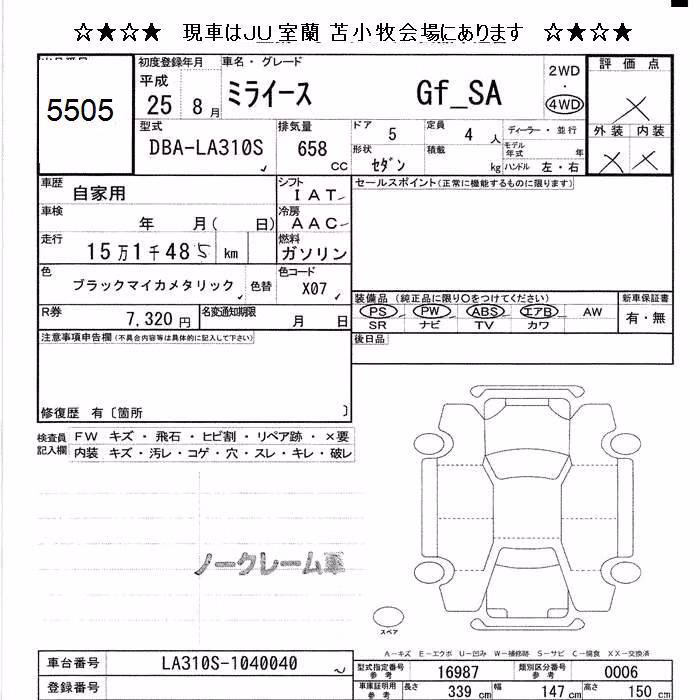 ☆★☆★ 現車はJU室蘭 苫小牧会場にあります ☆★☆★
5505
初度登録年月 車名・グレード
平成 25 8月 ミライース Gf_SA 2WD ・ 4WD
評価点 ×
外装 内装
× ×
型式 排気量 ドア 5 定員 4 人 ディーラー・並行
DBA-LA310S 658 CC
形状 セダン 積載 kg モデル年式 年
ハンドル 左・右
車歴 自家用 シフト IAT
セールスポイント(正常に機能するものに限ります)
車検 年 月( 日) 冷房 AAC
走行 15万1千485 km 燃料 ガソリン
色 ブラックマイカメタリック 色替 色コード X07
装備品(純正品に限り○をつけてください) 新車保証書
PS PW ABS エアB AW 有・無
SR ナビ TV カワ
R券 7,320円 名変通知期限 月 日
後日品
注意事項申告欄(不具合内容等は具体的に記入して下さい)
修復歴 有〔箇所 〕
検査員記入欄 FW キズ・飛石・ヒビ割・リペア跡・×要
内装 キズ・汚レ・コゲ・穴・スレ・キレ・破レ
ノークレーム車
スペア
A-キズ E-エクボ U-凹み W-補修跡 S-サビ C-腐食 XX-交換済
車台番号 LA310S-1040040
型式指定番号 参考 16987 類別区分番号 参考 0006
登録番号
車庫証明用 参考 長さ 339 cm 幅 147 cm 高さ 150 cm